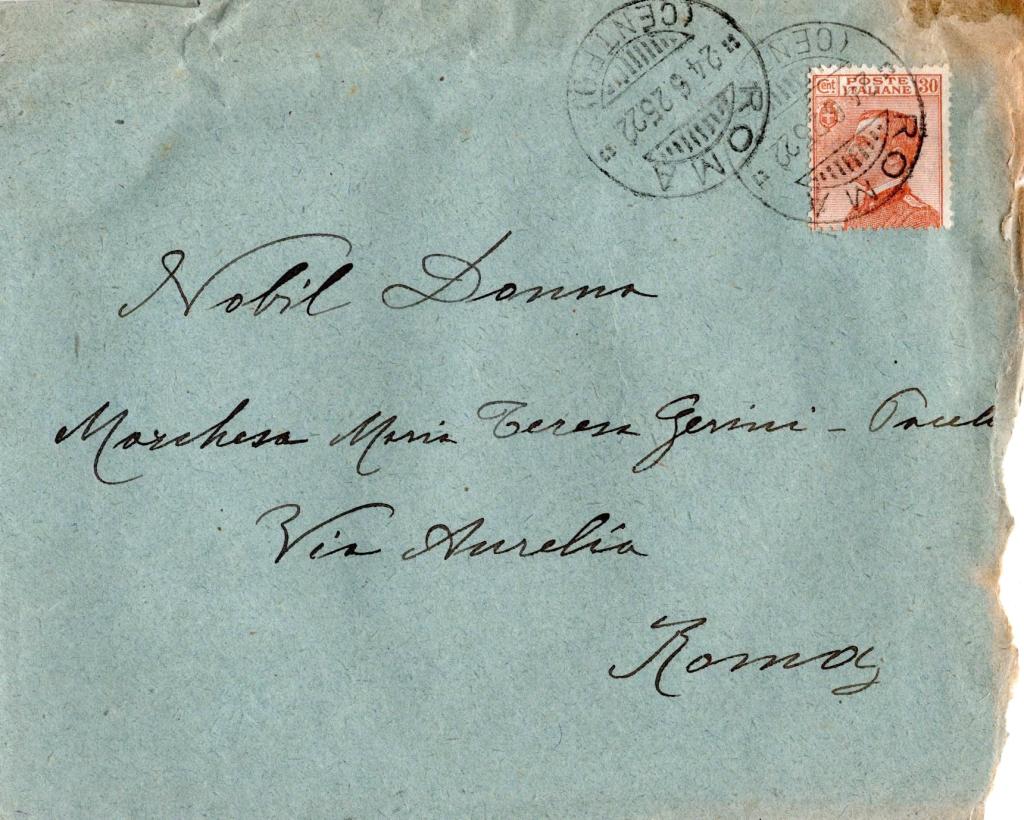 (CENTRO)
24.6.25 22
ROMA
(CEN
24.6.25 22
ROMA
Cent POSTE ITALIANE 30
Nobil Donna
Marchesa Maria Teresa Gerini -
Via Aurelia
Roma